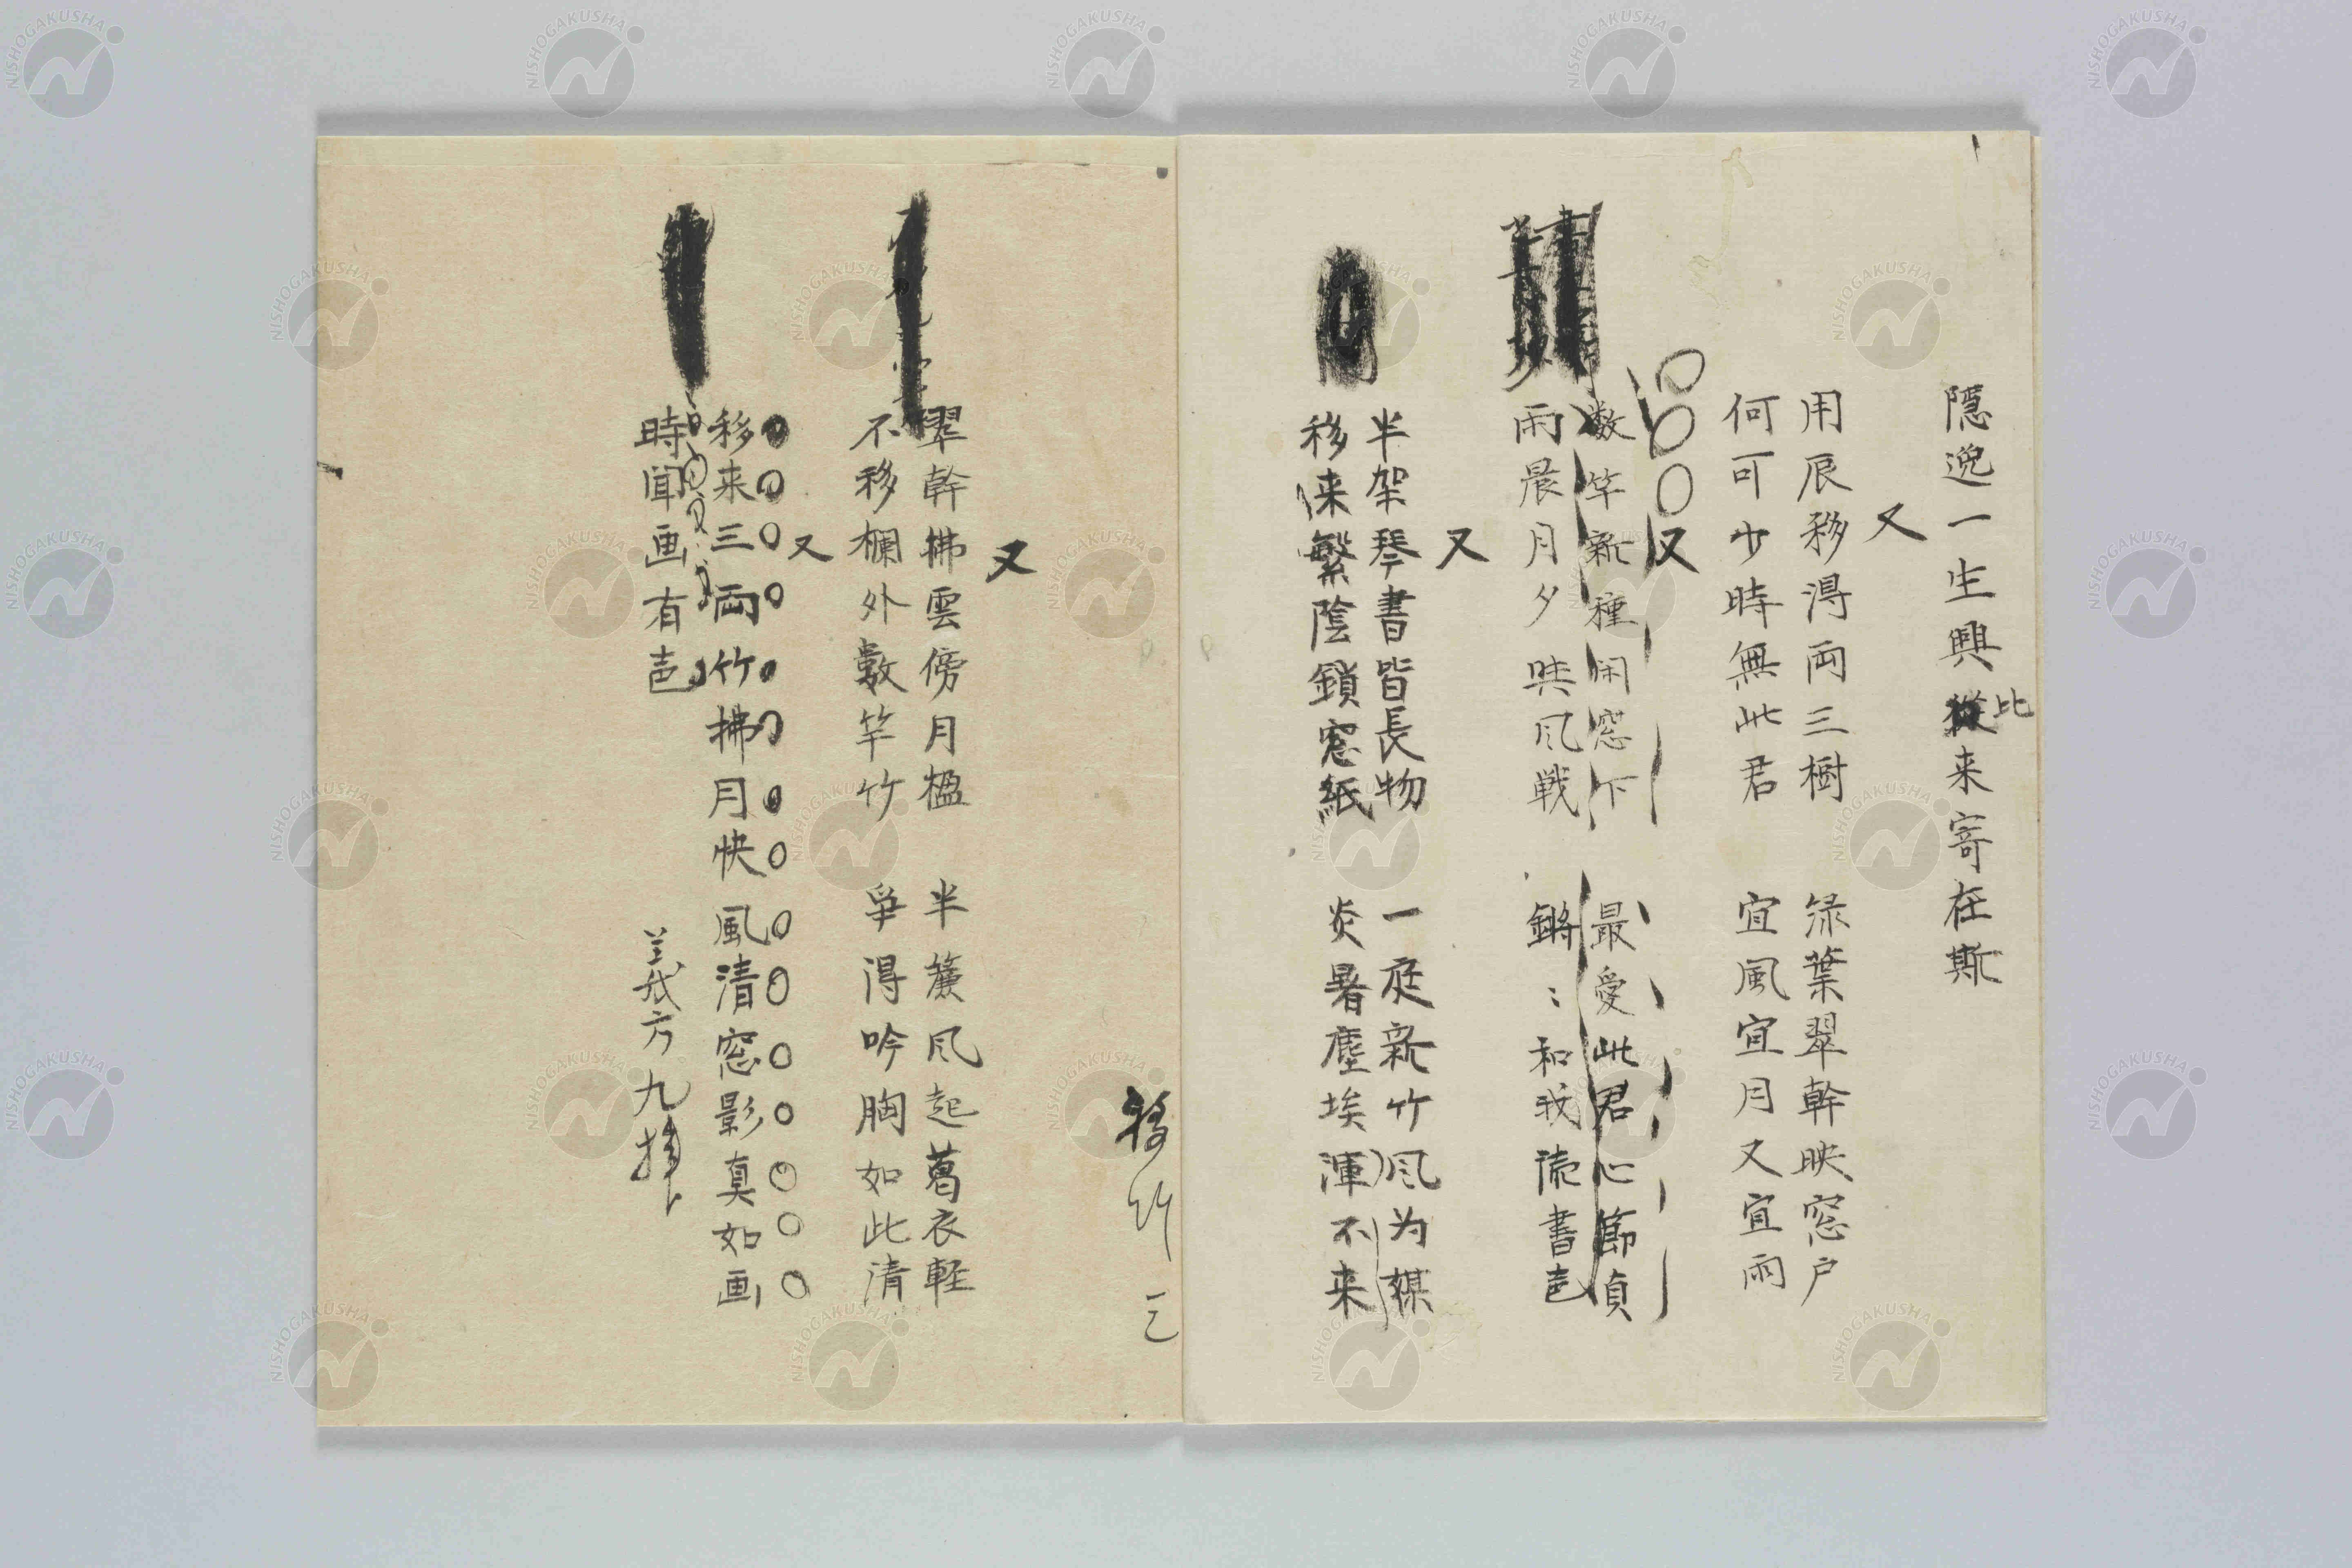 隠逸一生興從来寄在斯
比
又
用辰移得両三樹 緑葉翠幹映窓戸
何可少時無此君 宜風宜月又宜雨
又
数竿新種閑窓下 最愛此君心節貞
雨晨月夕兼風戦 鏘〻和我読書声
又
半架琴書皆長物 一庭新竹風为媒
移来繁陰鎖窓紙 炎暑塵埃渾不来
移竹 三
又
翠幹拂雲傍月楹 半簾風起葛衣軽
不移欄外数竿竹 争得吟胸如此清
又
移来三両竹拂月快風清窓影真如画
時聞画有声
義代方九拝
NISHOGAKUSHA